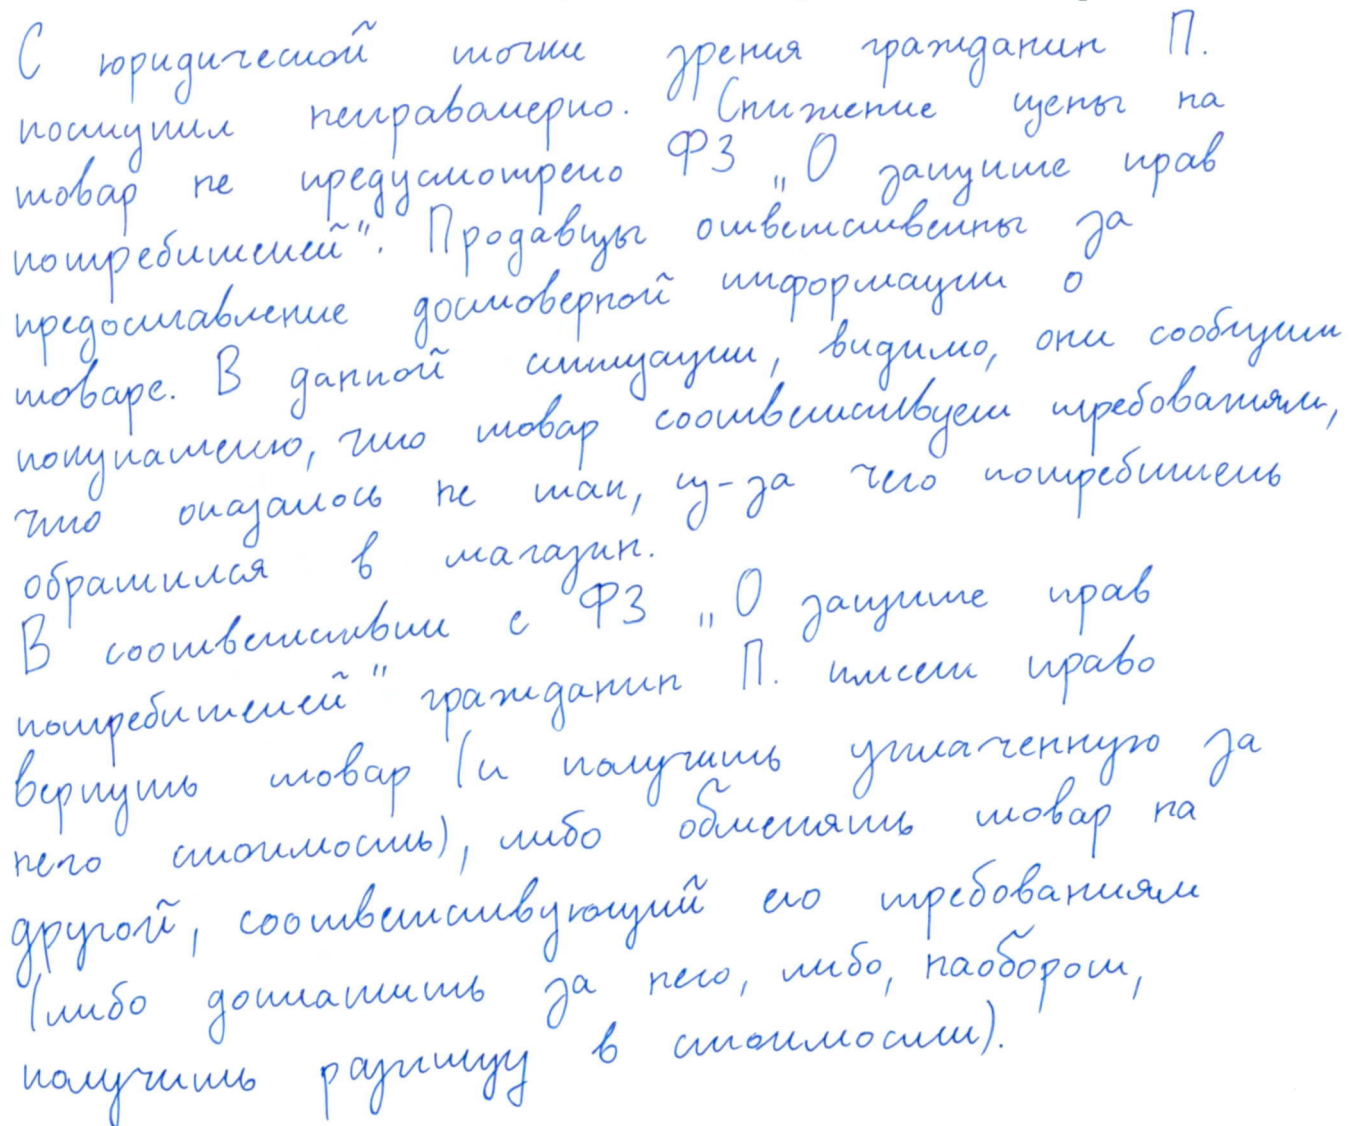 С юридической точки зрения гражданин П.
поступил неправомерно. Снижение цены на
товар не предусмотрено ФЗ „О защите прав
потребителей". Продавцы ответственны за
предоставление достоверной информации о
товаре. В данной ситуации, видимо, они сообщили
покупателю, что товар соответствует требованиям,
что оказалось не так, из-за чего потребитель
обратился в магазин.
В соответствии с ФЗ „О защите прав
потребителей" гражданин П. имеет право
вернуть товар (и получить уплаченную за
него стоимость), либо обменять товар на
другой, соответствующий его требованиям
(либо доплатить за него, либо, наоборот,
получить разницу в стоимости).